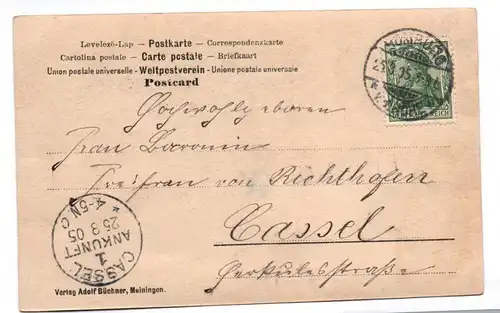 Levelezé-Lap — Postkarte — Correspondenzkarte
Cartolina postale — Carte postale — Briefkaart
Union postale universelle — Weltpostverein — Unione postale universale
Postcard
Hochwohlgeboren
Frau Baronin
Freifrau von Richthofen
Cassel
Herkulesstraße
CASSEL
1
ANKUNFT
25 8 05
* 4-5N C
DEUTSCHES REICH
Verlag Adolf Büchner, Meiningen.